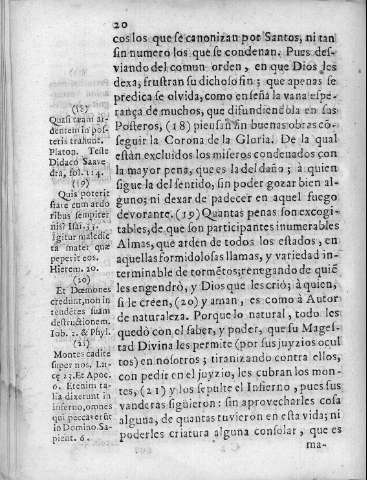 20
cos los que se canonizan por Santos, ni tan
sin numero los que se condenan. Pues des-
viando del comun orden, en que Dios les
dexa, frustran su dichoso fin; que apenas se
predica se olvida, como enseña la vana espe-
rança de muchos, que difundiendola en sus
Posteros, (18) piensan sin buenas obras có-
seguir la Corona de la Gloria. De la qual
están excluidos los miseros condenados con
la mayor pena, que es la del daño; à quien
sigue la del sentido, sin poder gozar bien al-
guno; ni dexar de padecer en aquel fuego
devorante. (19) Quantas penas son excogi-
tables, de que son participantes inumerables
Almas, que arden de todos los estados, en
aquellas formidolosas llamas, y variedad in-
terminable de tormẽtos; renegando de quiẽ
les engendrò, y Dios que les criò; à quien,
si le creen, (20) y aman, es como à Autor
de naturaleza. Porque lo natural, todo les
quedò con el saber, y poder, que su Mages-
tad Divina les permite (por sus juyzios ocul
tos) en nosotros; tiranizando contra ellos,
con pedir en el juyzio, les cubran los mon-
tes, (21) y los sepulte el Infierno, pues sus
vanderas siguieron: sin aprovecharles cosa
alguna, de quantas tuvieron en esta vida; ni
poderles criatura alguna consolar, que es
ma-
(18)
Quasi tram ar-
dentem in pos-
teris trahunt.
Platon. Teste
Didaco Saave
dra, fol. 114.
(19)
Quis poterit
stare cum ardo
ribus sempiter
nis? Isai. 33.
Igitur maledic
ta mater quæ
peperit eos.
Hierem. 20.
(20)
Et Dæmones
credunt, non in
tendétes suam
destructionem.
Iob. 2. & Phys.
(21)
Montes cadite
super nos. Lu-
cæ 23. Et Apoc.
6. Etenim ta-
lia dixerunt in
inferno, omnes
qui peccaverūt
in Domino Sa-
pient. 6.